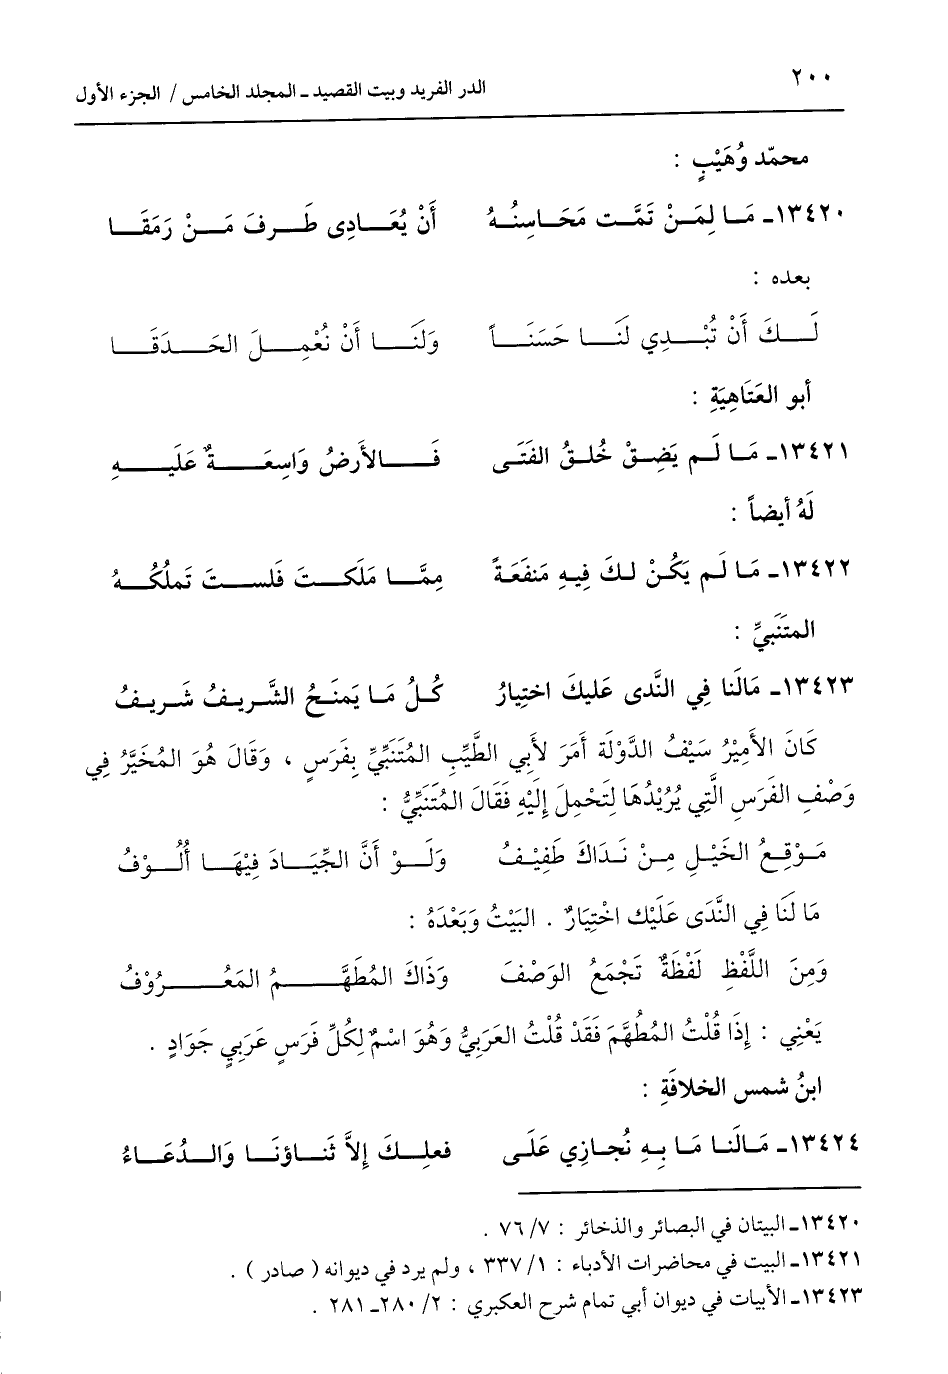 ٢٠٠
الدر الفريد وبيت القصيد ـ المجلد الخامس / الجزء الأول
محمّد وُهَيْبٍ :
١٣٤٢٠ـ مَا لِمَنْ تَمَّت مَحَاسِنُهُ أَنْ يُعَادِى طَرفَ مَنْ رَمَقَا
بعده :
لَكَ أَنْ تُبْدِي لَنَا حَسَنَاً وَلَنَا أَنْ نُعْمِلَ الحَدَقَا
أبو العَتَاهِيَةِ :
١٣٤٢١ـ مَا لَم يَضِقْ خُلقُ الفَتَى فَالأَرضُ وَاسِعَةٌ عَلَيهِ
لَهُ أيضاً :
١٣٤٢٢ـ مَا لَم يَكُنْ لكَ فِيهِ مَنفَعَةً مِمَّا مَلَكتَ فَلستَ تَملُكُهُ
المتَنَبيِّ :
١٣٤٢٣ـ مَالَنا فِي النَّدى عَليكَ اختِيارُ كُلُ مَا يَمنَحُ الشَّريفُ شَريفُ
كَانَ الأَمِيْرُ سَيْفُ الدَّوْلَة أَمَرَ لأَبِي الطَّيِّبِ المُتَنَبِّيِّ بِفَرَسٍ ، وَقَالَ هُوَ المُخَيَّرُ فِي
وَصْفِ الفَرَسِ الَّتِي يُرُيْدُهَا لِتَحْمِلَ إِلَيْهِ فَقَالَ المُتَنَبِّيُّ :
مَوْقِعُ الخَيْلِ مِنْ نَدَاكَ طَفِيْفُ وَلَوْ أَنَّ الجِّيَادَ فِيْهَا أُلُوْفُ
مَا لَنَا فِي النَّدَى عَلَيْك اخْتِيَارٌ . البَيْتُ وَبَعْدَهُ :
وَمِنَ اللَّفْظِ لَفْظَةٌ تَجْمَعُ الوَصْفَ وَذَاكَ المُطَهَّمُ المَعْرُوْفُ
يَعْنِي : إِذَا قُلْتُ المُطُهَّمَ فَقَدْ قُلْتُ العَرَبِيُّ وَهُوَ اسْمٌ لِكُلِّ فَرَسٍ عَرَبِي جَوَادٍ .
ابنُ شمس الخلافَةِ :
١٣٤٢٤ـ مَالَنا مَا بِهِ نُجازِي عَلَى فعلِكَ إلاَّ ثَناؤنَا وَالدُعَاءُ
١٣٤٢٠ـ البيتان في البصائر والذخائر : ٧/ ٧٦ .
١٣٤٢١ـ البيت في محاضرات الأدباء : ١/ ٣٣٧ ، ولم يرد في ديوانه ( صادر ) .
١٣٤٢٣ـ الأبيات في ديوان أبي تمام شرح العكبري : ٢/ ٢٨٠ـ ٢٨١ .